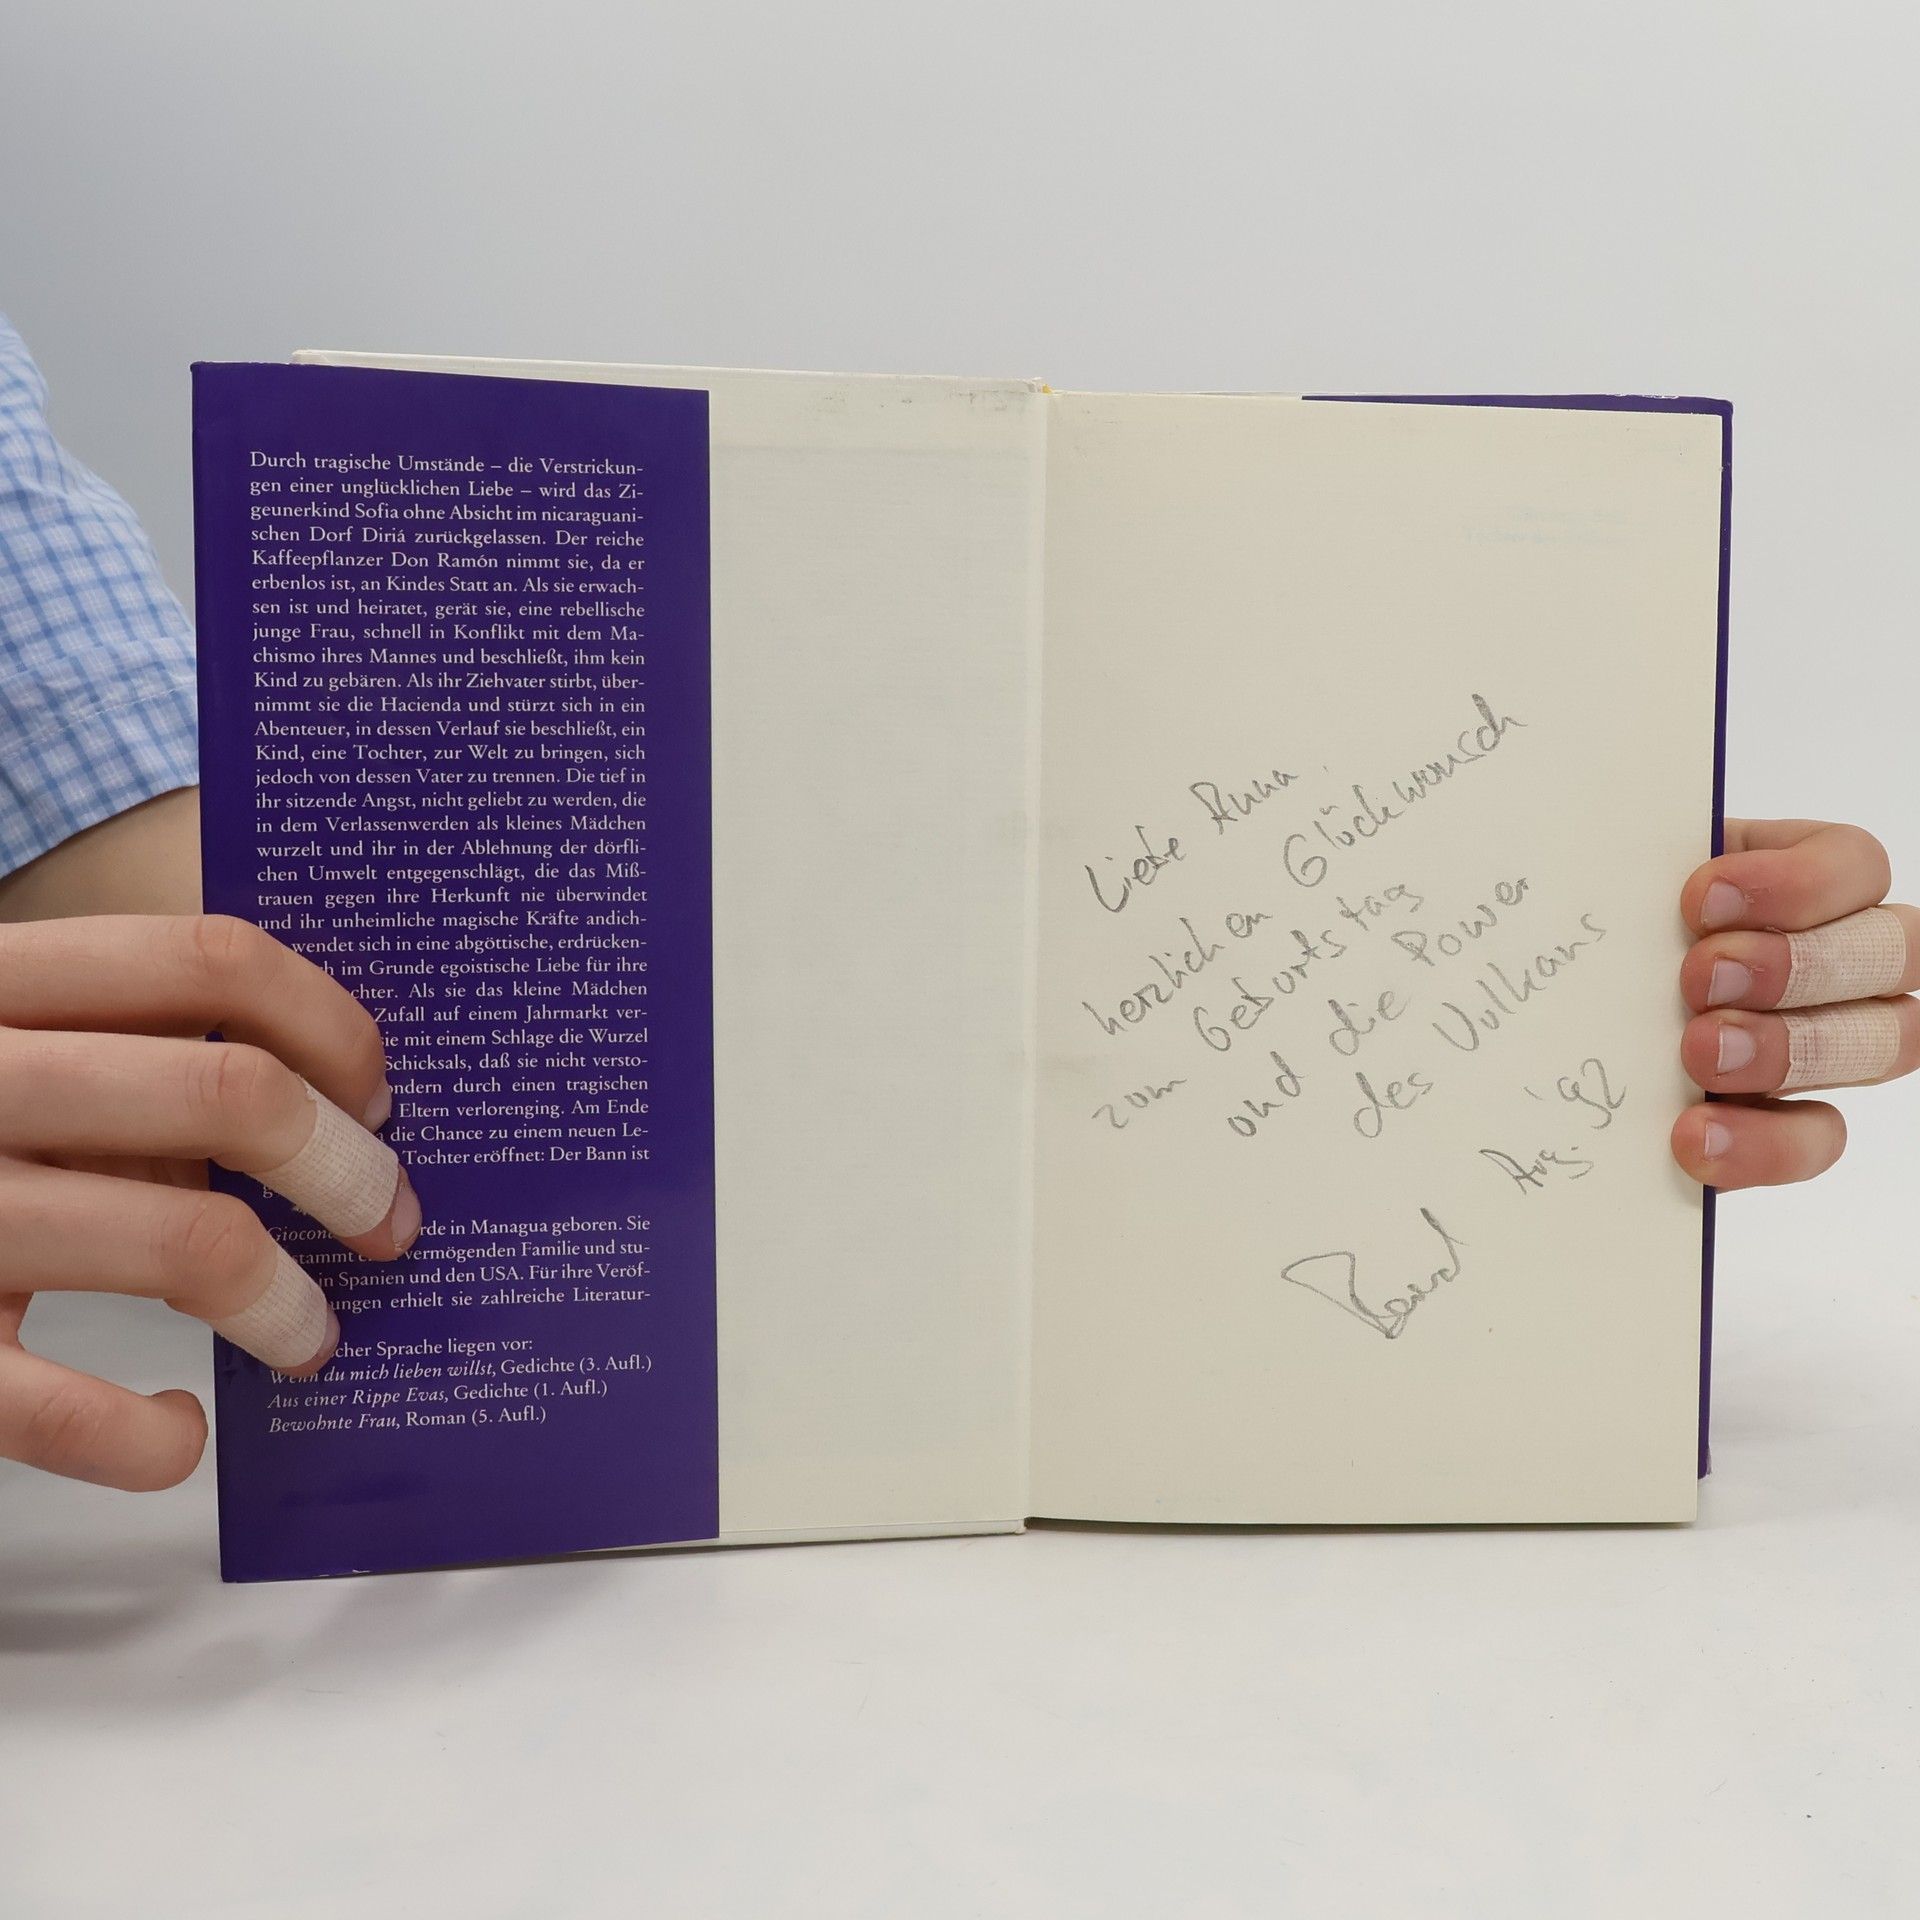 Durch tragische Umstände – die Verstrickun-
gen einer unglücklichen Liebe – wird das Zi-
geunerkind Sofia ohne Absicht im nicaraguani-
schen Dorf Diriá zurückgelassen. Der reiche
Kaffeepflanzer Don Ramón nimmt sie, da er
erbenlos ist, an Kindes Statt an. Als sie erwach-
sen ist und heiratet, gerät sie, eine rebellische
junge Frau, schnell in Konflikt mit dem Ma-
chismo ihres Mannes und beschließt, ihm kein
Kind zu gebären. Als ihr Ziehvater stirbt, über-
nimmt sie die Hacienda und stürzt sich in ein
Abenteuer, in dessen Verlauf sie beschließt, ein
Kind, eine Tochter, zur Welt zu bringen, sich
jedoch von dessen Vater zu trennen. Die tief in
ihr sitzende Angst, nicht geliebt zu werden, die
in dem Verlassenwerden als kleines Mädchen
wurzelt und ihr in der Ablehnung der dörfli-
chen Umwelt entgegenschlägt, die das Miß-
trauen gegen ihre Herkunft nie überwindet
und ihr unheimliche magische Kräfte andich-
wendet sich in eine abgöttische, erdrücken-
im Grunde egoistische Liebe für ihre
chter. Als sie das kleine Mädchen
Zufall auf einem Jahrmarkt ver-
sie mit einem Schlage die Wurzel
Schicksals, daß sie nicht versto-
ondern durch einen tragischen
Eltern verlorenging. Am Ende
die Chance zu einem neuen Le-
Tochter eröffnet: Der Bann ist
rde in Managua geboren. Sie
stammt vermögenden Familie und stu-
in Spanien und den USA. Für ihre Veröf-
ungen erhielt sie zahlreiche Literatur-
scher Sprache liegen vor:
Wenn du mich lieben willst, Gedichte (3. Aufl.)
Aus einer Rippe Evas, Gedichte (1. Aufl.)
Bewohnte Frau, Roman (5. Aufl.)
Liebe Anna,
herzlichen Glückwunsch
zum Geburtstag
und die Power
des Vulkans
Aug. '92